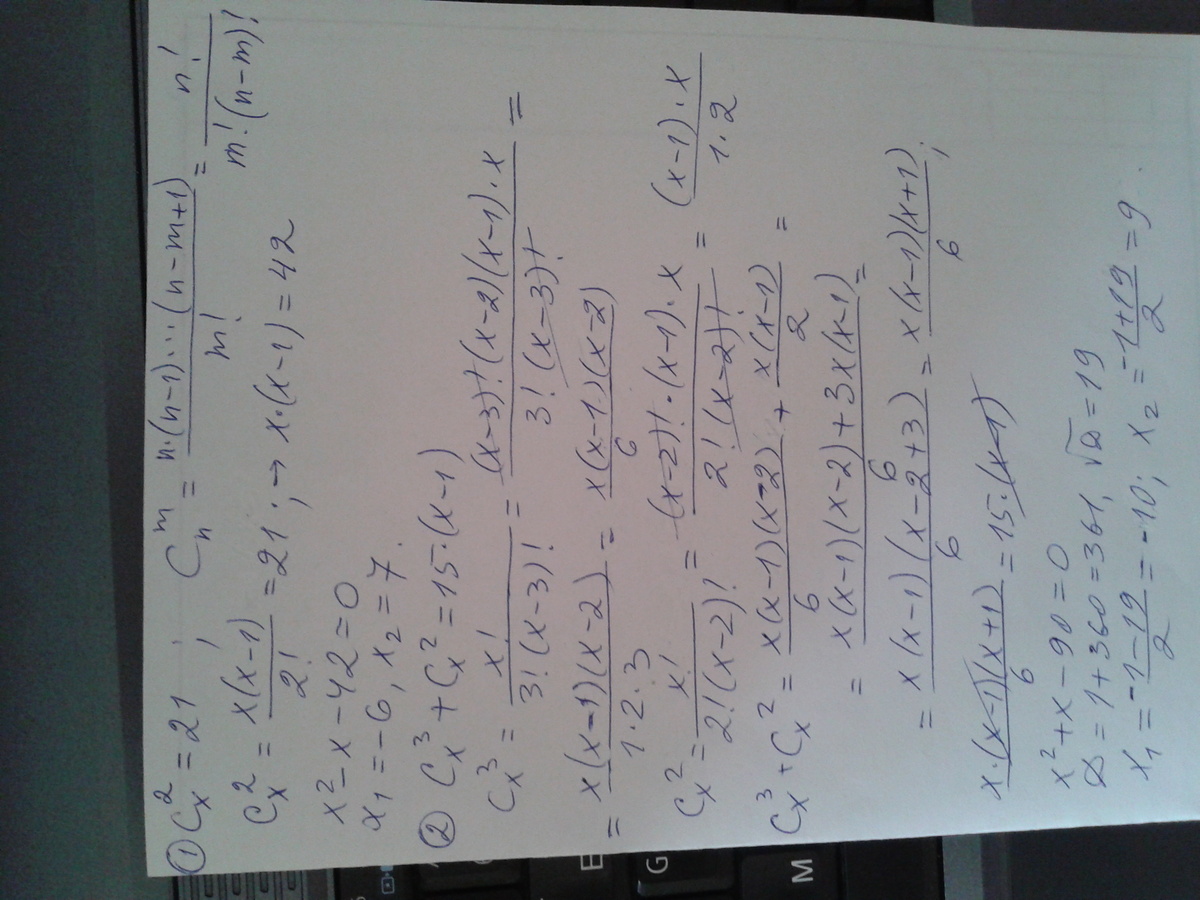 ① C_x^2 = 21; C_n^m = n·(n-1)···(n-m+1)/m! = n!/m!(n-m)!
C_x^2 = x(x-1)/2! = 21; → x·(x-1) = 42
x² - x - 42 = 0
x₁ = -6, x₂ = 7.
② C_x^3 + C_x^2 = 15·(x-1)
C_x^3 = x!/3!(x-3)! = (x-3)!(x-2)(x-1)·x/3!(x-3)! =
= x(x-1)(x-2)/1·2·3 = x(x-1)(x-2)/6
C_x^2 = x!/2!(x-2)! = (x-2)!·(x-1)·x/2!(x-2)! = (x-1)·x/1·2
C_x^3 + C_x^2 = x(x-1)(x-2)/6 + x(x-1)/2 =
= x(x-1)(x-2)+3x(x-1)/6 =
= x(x-1)(x-2+3)/6 = x(x-1)(x+1)/6;
x·(x-1)(x+1)/6 = 15·(x-1)
x² + x - 90 = 0
D = 1 + 360 = 361, √D = 19
x₁ = -1-19/2 = -10; x₂ = -1+19/2 = 9
E
G
M